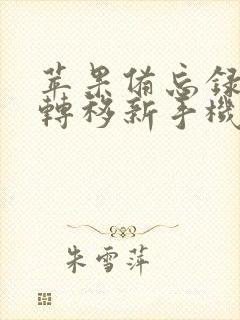 苹果備忘録
轉移新手機
朱雪萍